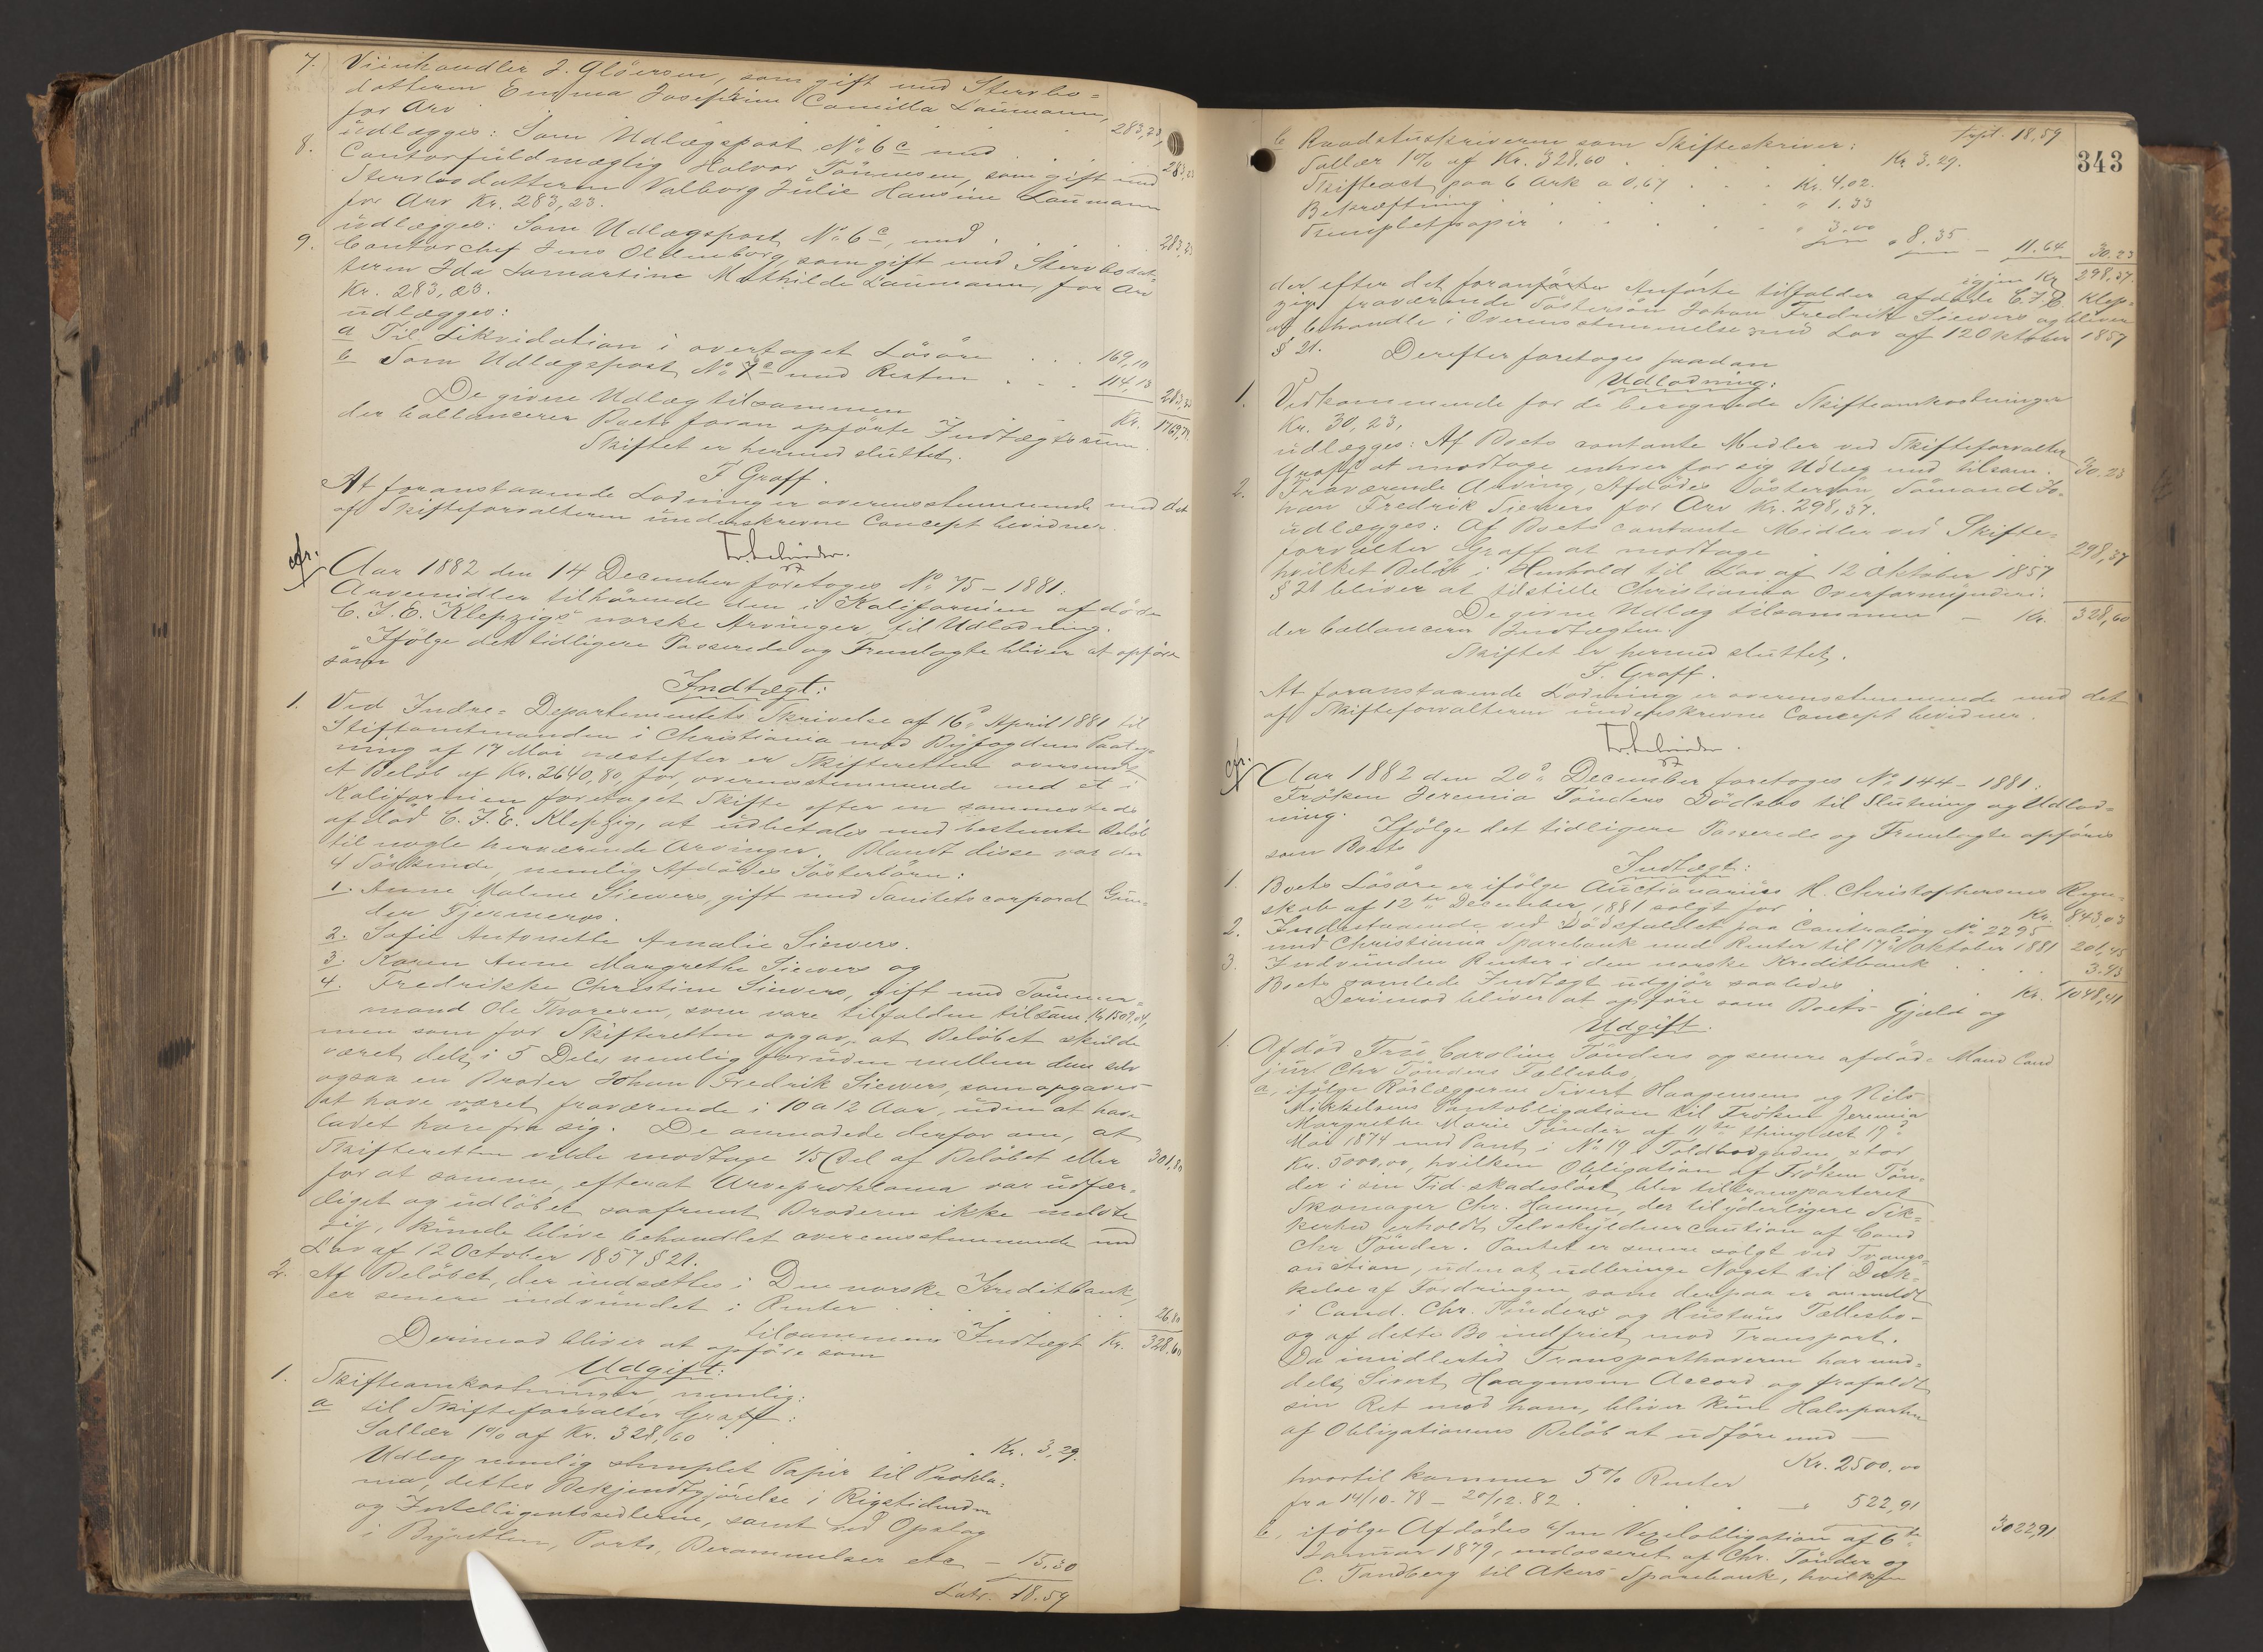 7. Viinhandler J. Glöersen, som gift med Stervbo=
datteren Emma Josephine Camilla Laumann,
for Arv 283,23,
udlægges: Som Udlægspost No 6 c med 283,23
8. Contorfuldmægtig Halvor Tönnesen, som gift med
Stervbodatteren Valborg Julie Hansine Laumann
for Arv Kr. 283,23.
udlægges: Som Udlægspost No 6 c, med 283,23
9. Contorchef Jens Oldenborg, som gift med Stervbodat=
teren Ida Lamartine Mathilde Laumann, for Arv
Kr. 283,23.
udlægges:
a Til Likvidation i overtaget Lösöre 169,10
b Som Udlægspost No 7 c med Resten 114,13 283,23
De givne Udlæg tilsammen Kr. 1769,79
der ballancerer Boets foran opförte Indtægtssum.
Skiftet er hermed sluttet.
F Graff.
At foranstaaende Lodning er overensstemmende med det
af Skifteforvalteren underskrevne Concept bevidner.
cfr. Aar 1882 den 14 December foretoges No 75 - 1881:
Arvemidler tilhörende den i Kalifornien afdöde
C. F. E. Klepzigs norske Arvinger til Udlodning.
Ifölge det tidligere Passerede og Fremlagte bliver at opföre
som
Indtægt:
1. Ved Indre=Departementets Skrivelse af 16de April 1881 til
Stiftamtmanden i Christiania med Byfogdens Paateg=
ning af 17 Mai næstefter er Skifteretten oversendt
et Belöb af Kr. 2640,80, for, overensstemmende med et i
Kalifornien foretaget Skifte efter en sammesteds
afdöd C. F. E. Klepzig, at udbetales med bestemte Belöb
til nogle herværende Arvinger. Blandt disse var der
4 Söskende, nemlig Afdödes Sösterbörn:
1. Anne Malene Siewers, gift med Sanitetscorporal Gun=
der Tjermeros.
2. Sofie Antonette Amalie Siewers.
3. Karen Anne Margrethe Siewers og
4. Fredrikke Christine Siewers, gift med Tömmer=
mand Ole Thoresen, som vare tilfalden tilsam. Kr 1509,04,
men som for Skifteretten opgav, at Belöbet skulde
været delt i 5 Dele nemlig foruden mellem dem selv
ogsaa en Broder Johan Fredrik Siewers, som opgaves
at have været fraværende i 10 a 12 Aar, uden at have
ladet höre fra sig. De anmodede derfor om, at
Skifteretten vilde modtage 1/5 Del af Belöbet eller 301,80
for at samme, efterat Arveproklama var udfær=
diget og udlöbet saafremt Broderen ikke meldte
sig, kunde blive behandlet overensstemmende med
Lov af 12 October 1857 § 21.
2. Af Belöbet, der indsættes i Den norske Kreditbank,
er senere indvundet i Renter 26,80
tilsammens Indtægt Kr. 328,60
Derimod bliver at opföre som
Udgift:
1. Skifteomkostninger nemlig:
a til Skifteforvalter Graff:
Sallær 1% af Kr. 328,60 Kr. 3,29.
Udlæg nemlig stemplet Papir til Prokla=
ma, dettes Bekjendtgjörelse i Rigstidenden
og Intelligentssedlerne, samt ved Opslag
i Byretten, Porto, Berammelser etc - 15.30
Latr. 18.59
343
Trpt. 18,59
b Raadstuskriveren som Skifteskriver:
Sallær 1% af Kr. 328,60 Kr 3,29.
Skifteact paa 6 Ark a 0,67 Kr. 4,02.
Bekræftning " 1.33
Stempletpapir " 3.00
" 8.35 - 11.64 30.23
igjen Kr 298,37.
der efter det foranförte Anförte tilfalder afdöde C. F. E Klep=
zigs fraværende Söstersön Johan Fredrik Siewers og bliver
at behandle i Overensstemmelse med Lov af 12 Oktober 1857
§ 21.
Derefter foretoges saadan
Udlodning:
1. Vedkommende for de beregnede Skifteomkostninger
Kr. 30,23,
udlægges: Af Boets contante Midler ved Skifteforvalter
Graff at modtage enhver for sig Udlæg med tilsam. 30.23
2. Fraværende Arving, Afdödes Söstersön, Sömand Jo=
han Fredrik Siewers for Arv Kr. 298,37.
udlægges: Af Boets contante Midler ved Skifte=
forvalter Graff at modtage 298,37
hvilket Belöb i Henhold til Lov af 12 Oktober 1857
§ 21 bliver at tilstille Christiania Overformynderi.
De givne Udlæg tilsammen - Kr. 328,60
der ballancerer Indtægten.
Skiftet er hermed sluttet.
F. Graff.
At foranstaaende Lodning er overensstemmende med det
af Skifteforvalteren underskrevne Concept bevidner.
cfr. Aar 1882 den 20de December foretoges No 144 - 1881:
Fröken Jeremia Tönders Dödsbo til Slutning og Udlod=
ning. Ifölge det tidligere Passerede og Fremlagte opföres
som Boets
Indtægt:
1. Boets Lösöre er ifölge Auctionarius H. Christophersens Regn=
skab af 12te December 1881 solgt for Kr. 843,03
2. Indestaaende ved Dödsfaldet paa Contrabog No 2295
med Christiania Sparebank med Renter til 17de Oktober 1881 201,45
3. Indvundne Renter i den norske Kreditbank 3.93
Boets samlede Indtægt udgjör saaledes Kr. 1048,41
Derimod bliver at opföre som Boets Gjæld og
Udgift.
1. Afdöd Frue Caroline Tönders og senere afdöd= Mand Cand
jur. Chr Tönders Fællesbo.
a, ifölge Rörlæggerne Sivert Haagensens og Nils
Mikkelsens Pantobligation til Fröken Jeremia
Margrethe Marie Tönder af 11te thinglæst 19de
Mai 1874 med Pant i No 19 Toldbodgaden, stor
Kr. 5000,00, hvilken Obligation af Fröken Tön=
der i sin Tid skadeslöst blev tiltransporteret
Skomager Chr. Hansen, der til yderligere Sik=
kerhed erholdt Selvskyldnercaution af Cand
Chr Tönder. Pantet er senere solgt ved Tvangs=
auction, uden at udbringe Noget til Dæk=
kelse af Fordringen, som derpaa er anmeldt
i Cand. Chr. Tönders og Hustrus Fællesbo-
og af dette Bo indfriet mod Transport.
Da imidlertid Transporthaveren har med=
delt Sivert Haagensen Accord og frafaldt
sin Ret mod ham, bliver kun Halvparten
af Obligationens Belöb at udföre med -
Kr. 2500,00
hvortil kommer 5% Renter
fra 14/10-78 - 20/12.82 - " 522,91
3022,91
b, ifölge Afdödes Vexelobligation af 6te
Januar 1879, endosseret af Chr. Tönder og
C. Tandberg til Akers Sparebank, hvilken